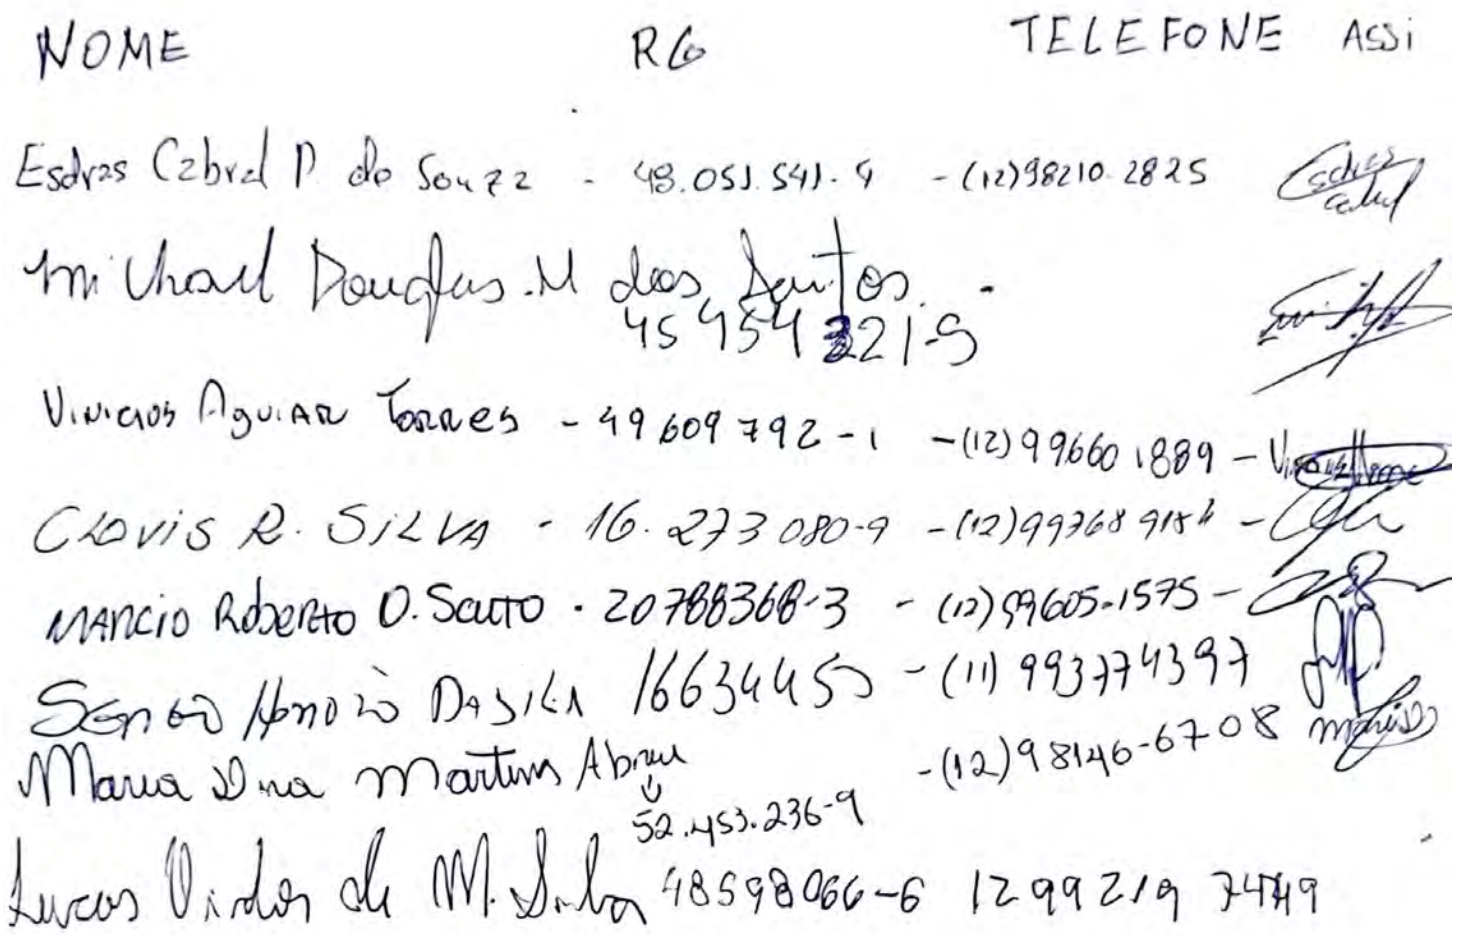 NOME RG TELEFONE ASSI
Esdras Cabral P. de Souza - 48.051.541-4 - (12)98210.2825
Michael Douglas. M dos Santos. -
45 454 321-5
Vinicios Aguiar Torres - 49 609 792-1 - (12) 99660 1889 -
CLOVIS R. SILVA - 16.273 080-9 - (12) 99768 9184 -
MARCIO ROBERTO D. SOUTO . 20788368-3 - (12) 99605-1575 -
SERGIO HONORIO DA SILVA - (11) 993774397
Maria Martins Abreu - (12) 98146-6708
52.453.236-9
Lucas de M. Silva 48598066-6 1299219